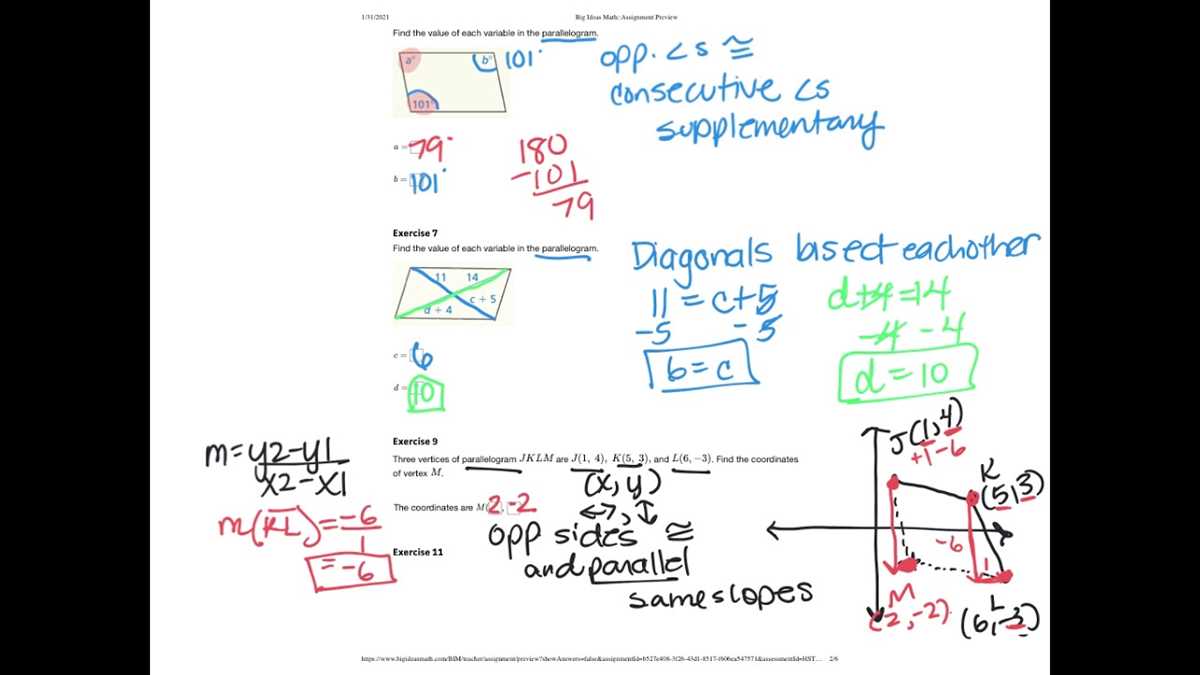 1/31/2021
Big Ideas Math: Assignment Preview
Find the value of each variable in the parallelogram.
a°
b°
101°
101°
opp. ∠s ≅
consecutive ∠s
supplementary
a = 79°
b = 101°
180
-101
79
Exercise 7
Find the value of each variable in the parallelogram.
11
14
c + 5
d + 4
c = 6
d = 10
Diagonals bisect eachother
11 = c+5
-5 -5
6 = c
d+4=14
-4 -4
d=10
Exercise 9
Three vertices of parallelogram JKLM are J(1, 4), K(5, 3), and L(6, −3). Find the coordinates
of vertex M.
The coordinates are M(2, -2
(x, y)
opp sides ≅
and parallel
same slopes
m=y2-y1
x2-x1
m(KL)= -6
1
= -6
Exercise 11
J(1,4)
+1 -6
K
(5,3)
-6
1
M
(2,-2)
L
(6,-3)
2/6